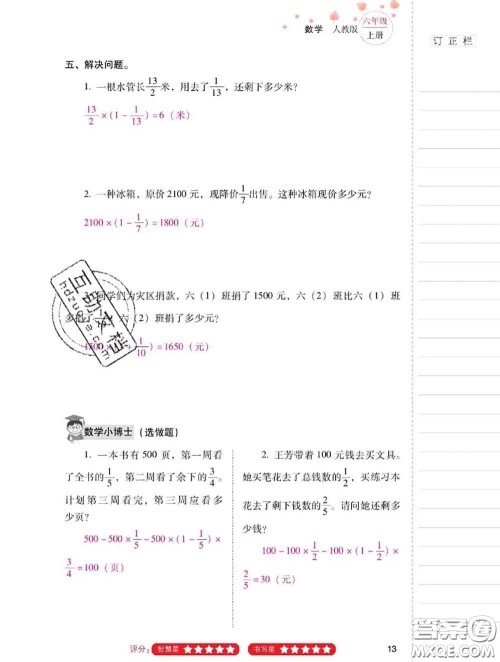 数学 人教版 六年级 上册
订正栏
五、解决问题。
1. 一根水管长13/2米，用去了1/13，还剩下多少米？
13/2×(1－1/13)＝6（米）
2. 一种冰箱，原价2100元，现降价1/7出售。这种冰箱现价多少元？
2100×(1－1/7)＝1800（元）
同学们为灾区捐款，六（1）班捐了1500元，六（2）班比六（1）班
多捐了 六（2）班捐了多少元？
1/10)＝1650（元）
数学小博士（选做题）
1. 一本书有500页，第一周看
了全书的1/5，第二周看了余下的3/4。
计划第三周看完，第三周应看多
少页？
500－500×1/5－500×(1－1/5)×
3/4＝100（页）
2. 王芳带着100元钱去买文具。
她买笔花去了总钱数的1/2，买练习本
花去了剩下钱数的2/5。请问她还剩多
少钱？
100－100×1/2－100×(1－1/2)×
2/5＝30（元）
评分：智慧星 ★★★★★ 书写星 ★★★★★
13
互助文档
答案圈
MXQE.COM